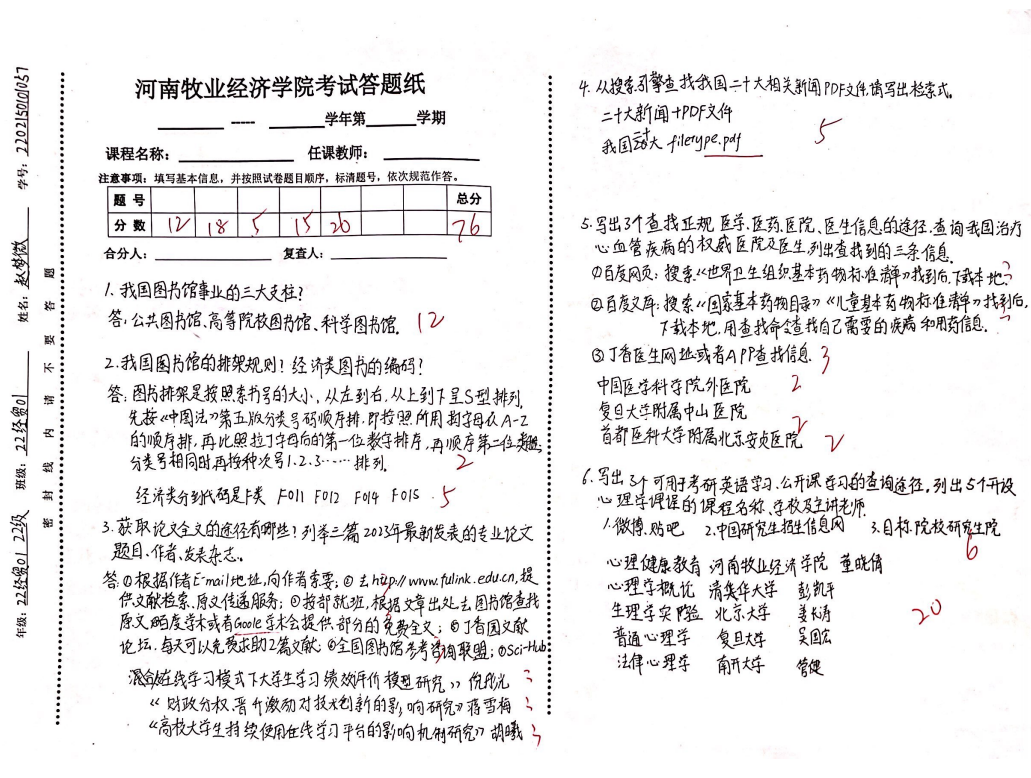 河南牧业经济学院考试答题纸
_______ ---- _______学年第_______学期
课程名称：_______ 任课教师：_______
注意事项：填写基本信息，并按照试卷题目顺序，标清题号，依次规范作答。
题号 总分
分数 12 18 5 15 20 76
合分人：_______ 复查人：_______
学号：22021501010157
姓名：赵梦微
班级：22经贸01
年级：22经贸01 22级
密 封 线 内 请 不 要 答 题
1.我国图书馆事业的三大支柱？
答：公共图书馆、高等院校图书馆、科学图书馆. 12
2.我国图书馆的排架规则！经济类图书的编码？
答：图书排架是按照索书号的大小，从左到右，从上到下呈S型排列
先按《中图法》第五版分类号码顺序排，即按照所用 字母从A-Z
的顺序排，再比照拉丁字母后的第一位数字排序，再顺序第二位
分类号相同时再按种次号1.2.3……排列. 2
经济类分到代码是F类 F011 F012 F014 F015 . 5
3.获取论文全文的途径有哪些？列举三篇2023年最新发表的专业论文
题目、作者、发表杂志。
答：①根据作者E-mail地址，向作者索要；②去http://www.fulink.edu.cn,提
供文献检索、原文传递服务；③按部就班，根据文章出处去图书馆查找
原文 百度学术或有Goole学术会提供部分的免费全文；⑤丁香园文献
论坛，每天可以免费求助2篇文献 ⑥全国图书馆参考咨询联盟；⑦Sci-Hub
混合在线学习模式下大学生学习绩效评价模型研究》 3
《财政分权、晋升激励对技术创新的影响研究》蒋雪梅 3
《高校大学生持续使用在线学习平台的影响机制研究》胡曦 3
4.从搜索引擎查找我国二十大相关新闻PDF文件.请写出检索式。
二十大新闻+PDF文件
我国 大 filetype.pdf 5
5.写出3个查找正规医学、医药、医院、医生信息的途径.查询我国治疗
心血管疾病的权威医院及医生.列出查找到的三条信息.
①百度网页：搜索《世界卫生组织基本药物标准清单》找到后.下载本地. 3
②百度文库：搜索《国家基本药物目录》《儿童基本药物标准清单》找到后,
下载本地.用查找命令查找自己需要的疾病和用药信息. 3
③丁香医生网址或者APP查找信息. 3
中国医学科学院外医院 2
复旦大学附属中山医院 2
首都医科大学附属北京安贞医院 2
6.写出3个可用于考研英语学习、公开课学习的查询途径,列出5个开设
心理学课课的课程名称、学校及主讲老师.
1.微博.贴吧 2.中国研究生招生信息网 3.目标院校研究生院
6
心理健康教育 河南牧业经济学院 董晓倩
心理学概论 清华大学 彭凯平
生理学实验 北京大学 姜长涛 20
普通心理学 复旦大学 吴国宏
法律心理学 南开大学 管健